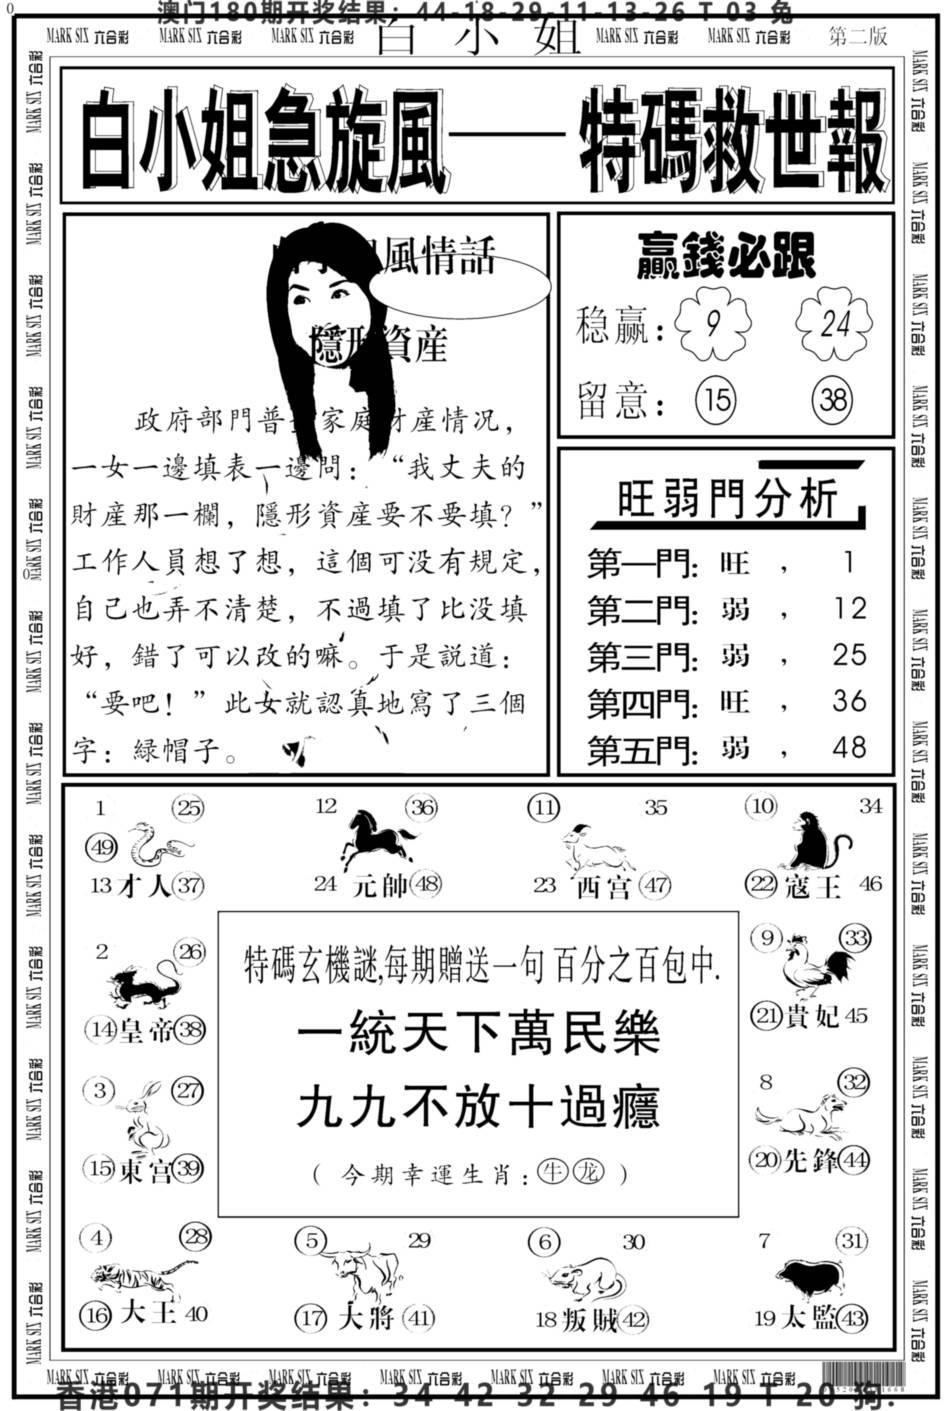 澳门180期开奖结果：44-18-29-11-13-26 T 03 兔
MARK SIX 六合彩 MARK SIX 六合彩 MARK SIX 六合彩 白小姐 MARK SIX 六合彩 MARK SIX 六合彩 第二版
白小姐急旋風——特碼救世報
風情話
隱形資産
政府部門普 家庭財産情况，
一女一邊填表一邊問：“我丈夫的
財産那一欄，隱形資産要不要填？”
工作人員想了想，這個可没有規定，
自己也弄不清楚，不過填了比没填
好，錯了可以改的嘛。于是説道：
“要吧！”此女就認真地寫了三個
字：緑帽子。
贏錢必跟
稳赢：9 24
留意：15 38
旺弱門分析
第一門：旺，1
第二門：弱，12
第三門：弱，25
第四門：旺，36
第五門：弱，48
1 25
49
13 才人 37
12 36
24 元帥 48
11 35
23 西宫 47
10 34
22 寇王 46
2 26
14 皇帝 38
9 33
21 貴妃 45
特碼玄機謎,每期贈送一句百分之百包中.
一統天下萬民樂
九九不放十過癮
（今期幸運生肖：牛龙）
3 27
15 東宫 39
8 32
20 先鋒 44
4 28
16 大王 40
5 29
17 大將 41
6 30
18 叛賊 42
7 31
19 太監 43
MARK SIX 六合彩 MARK SIX 六合彩 MARK SIX 六合彩 MARK SIX 六合彩 MARK SIX 六合彩 MARK SIX 六合彩 MARK SIX 六合彩
香港071期开奖结果：34-42-32-29-46-19-T-20 狗.